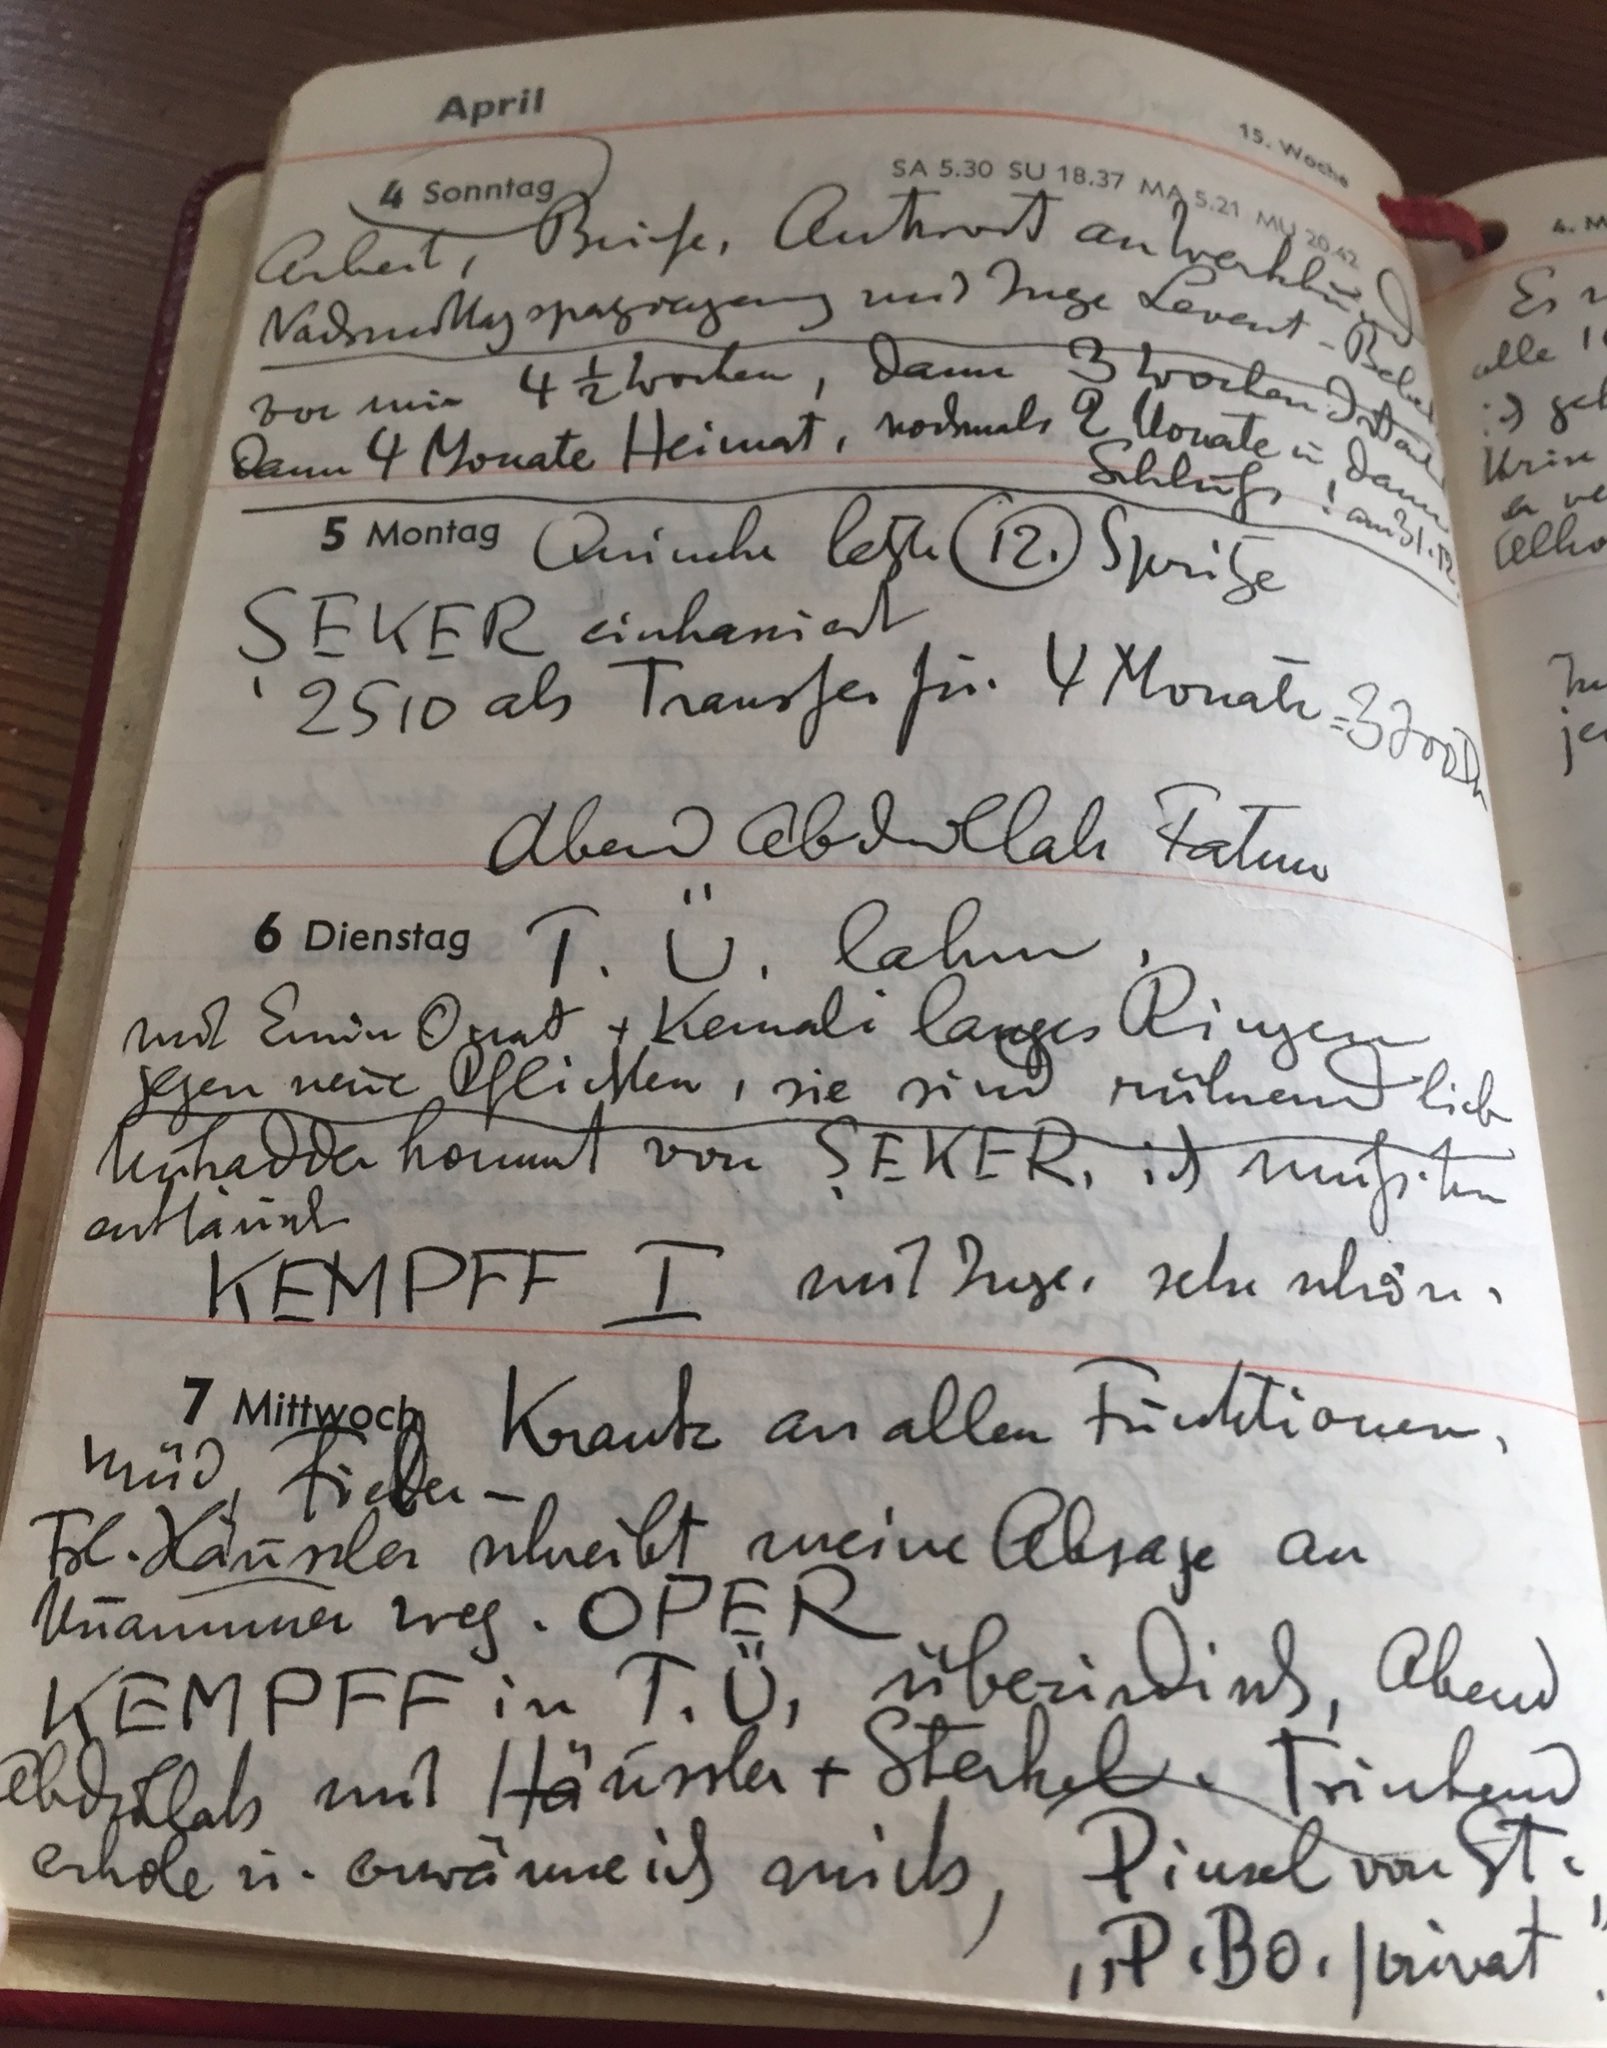 April
15. Woche
4 Sonntag
SA 5.30 SU 18.37 MA 5.21 MU 20.42
Arbeit, Briefe, Antwort an Werkbund
Nachmittagsspaziergang mit Inge Levent-
vor mir 4 ½ Wochen, dann 3 Wochen
Dann 4 Monate Heimat, nochmals 2 Monate u, dann
Schluß! am 31.12.
5 Montag
letzte 12. Spritze
ŞEKER einkassiert
2510 als Transfer für 4 Monate =
Abend Abdullah Fatma
6 Dienstag
T. Ü. lahm,
mit Emin Onat + Kemali langes Ringen
gegen neue Pflichten, sie sind rührend lieb
kommt von ŞEKER, ich mußt ihn
KEMPFF I mit Inge, sehr schön.
7 Mittwoch
Krank an allen Funktionen,
müd, Fieber -
Frl. Häussler schreibt meine Absage an
weg. OPER
KEMPFF in T.Ü, überirdisch, Abend
Abdullah mit Häussler + Sterkel. Trinkend
erhole u. erwärme ich mich, Pinsel von St.
„P. BO. privat".
4. M
Es
alle